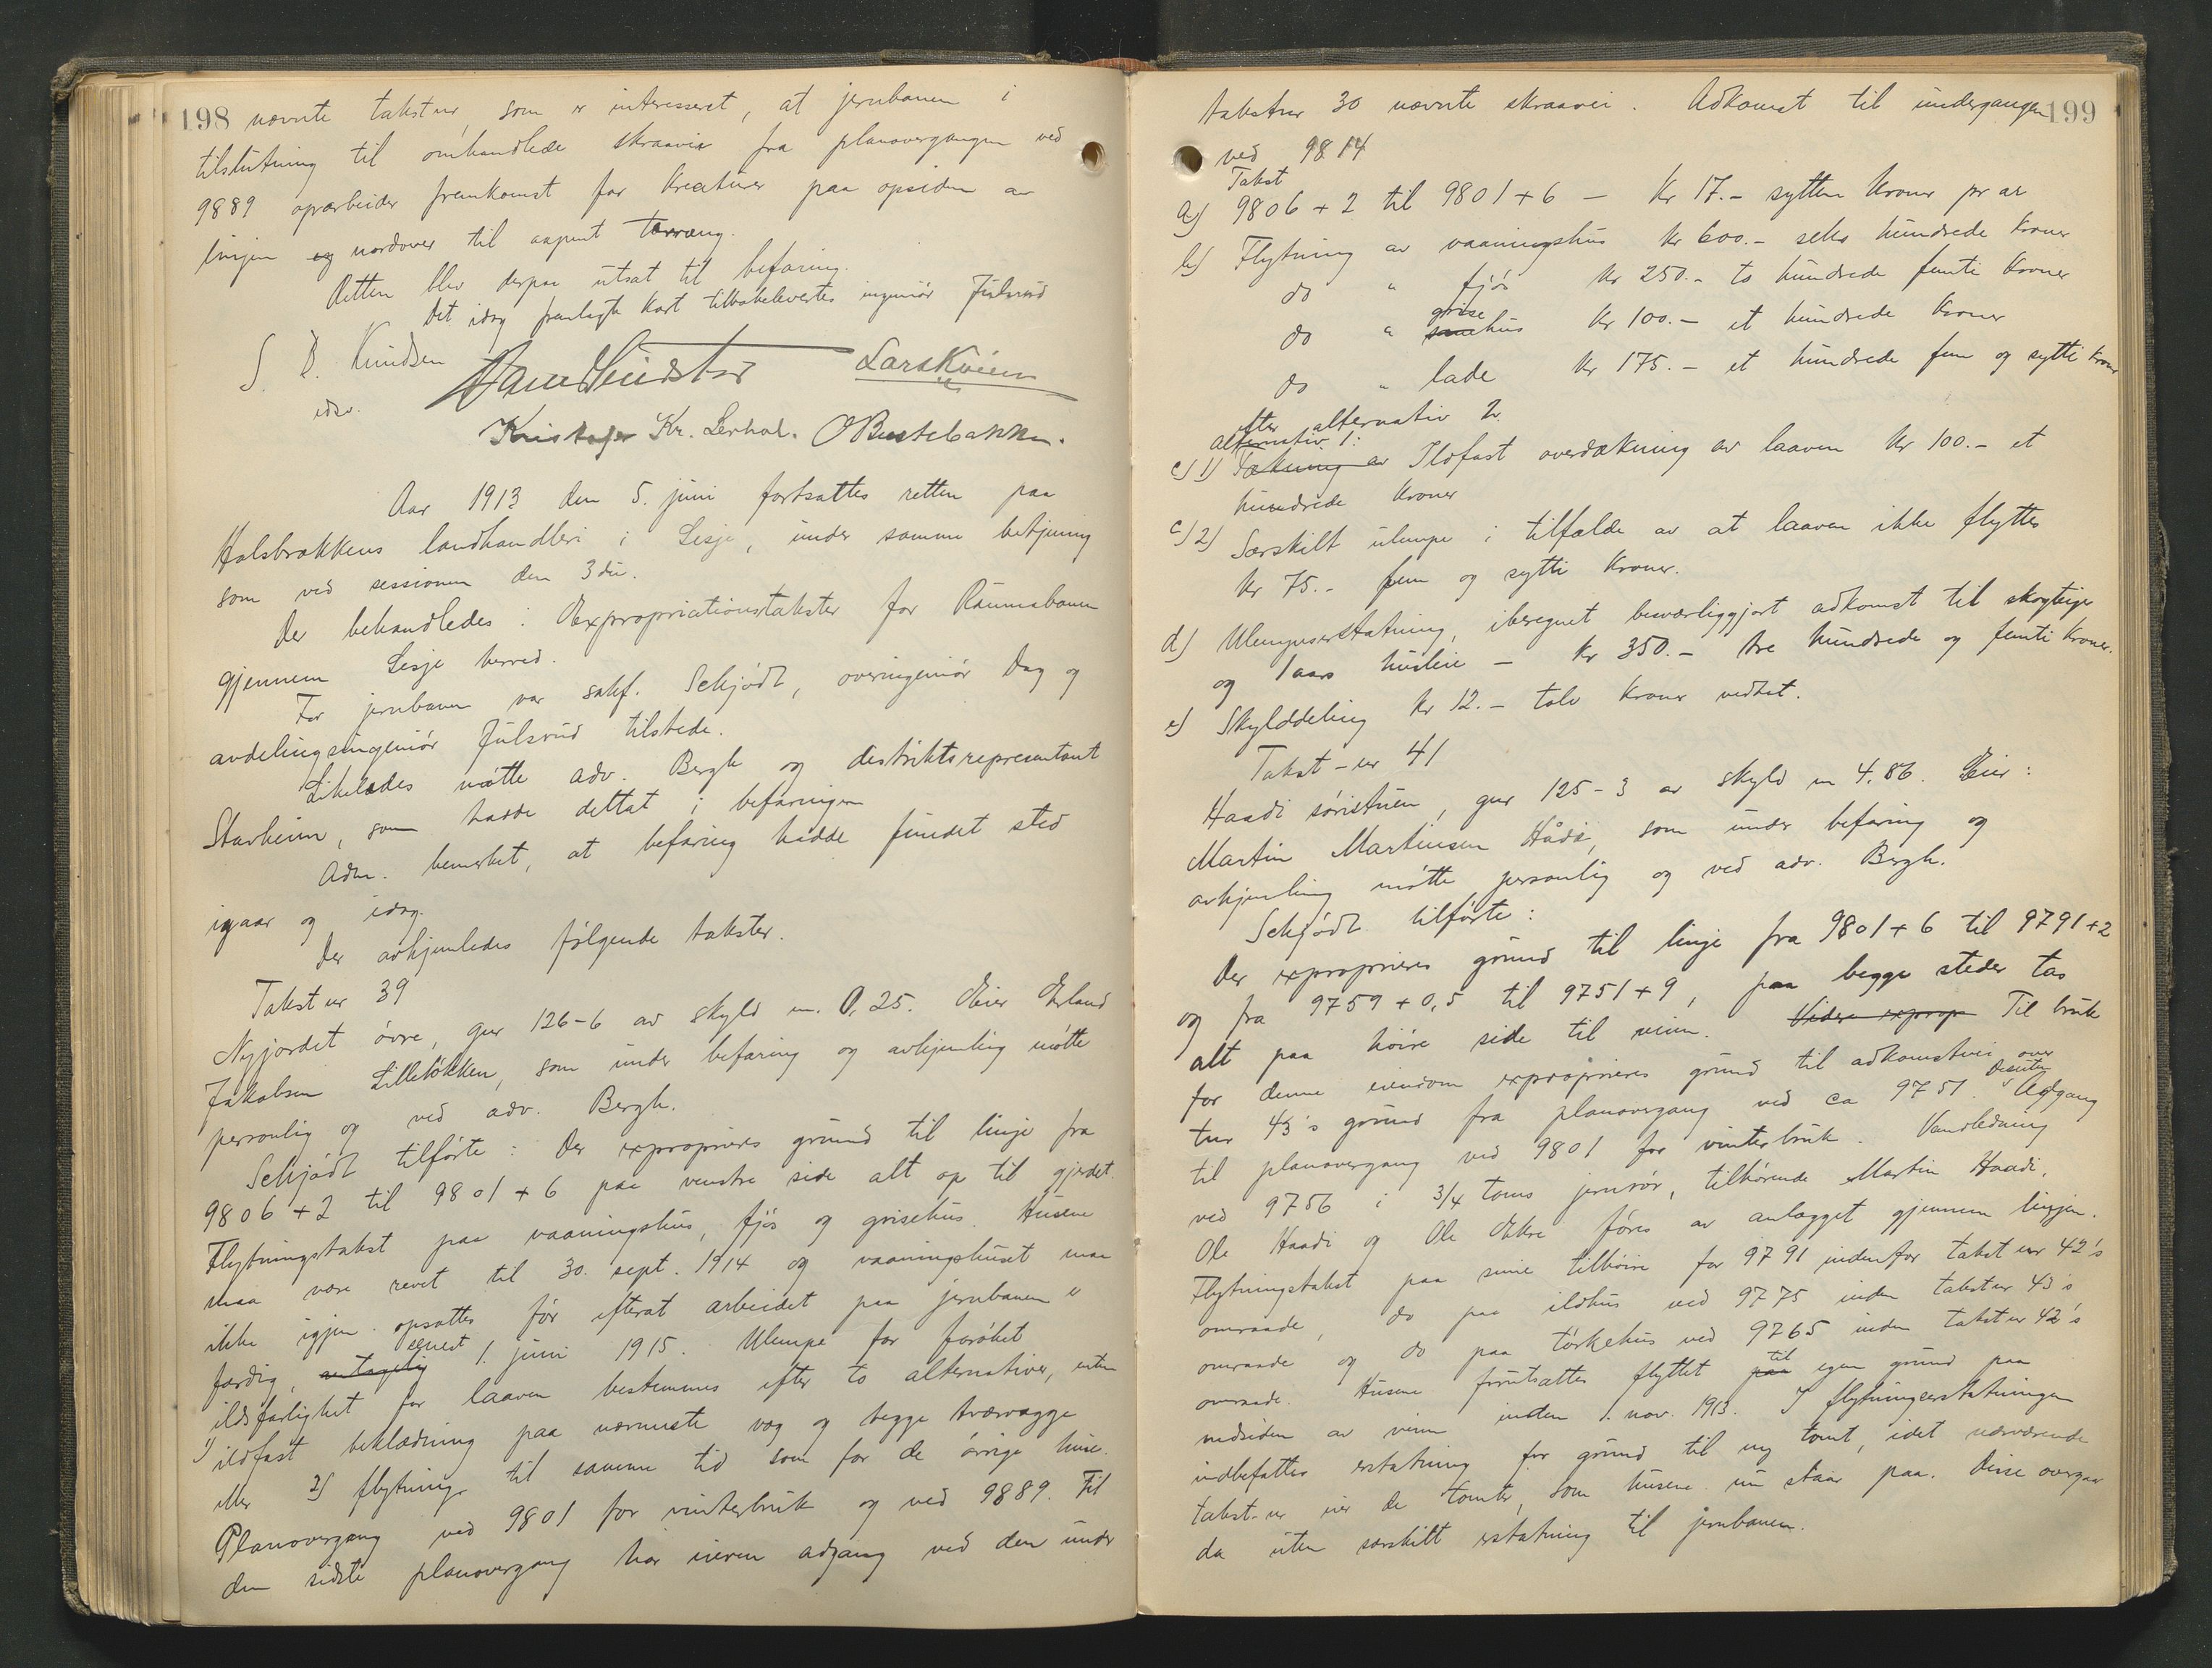 198
nævnte takstnr, som er interesseret, at jernbanen i
tilslutning til omhandlede skraavei fra planovergangen ved
9889 oparbeider fremkomst for kreaturer paa opsiden av
linjen og nordover til aapent terræng.
Retten blev derpaa utsat til befaring.
Det idag fremlagte kart tilbakelevertes ingeniør Julsrud
S. D. Knudsen
edsv.
Lars Kvien
Kristofer Kr. Lerhol. O Bustebakken.
Aar 1913 den 5. juni fortsattes retten paa
Holsbrækkens landhandleri i Lesje, under samme betjening
som ved sessionen den 3die.
Der behandledes: Expropriationstakster for Raumabanen
gjennem Lesje herred.
For jernbanen var sakf. Schjødt, overingeniør Dag og
avdelingsingeniør Julsrud tilstede.
Likeledes møtte adv. Bergh og distriktsrepresentant
Stavheim, som hadde deltat i befaringen
Adm. bemerket, at befaring hadde fundet sted
igaar og idag.
Der avhjemledes følgende takster.
Takst nr 39
Nyjordet øvre, gnr 126-6 av skyld m. 0,25. Eier Erland
Jakobsen Lilleløkken, som under befaring og avhjemling møtte
personlig og ved adv. Bergh.
Schjødt tilførte: Der exproprieres grund til linje fra
9806 + 2 til 9801 + 6 paa venstre side alt op til gjerdet.
Flytningstakst paa vaaningshus, fjøs og grisehus. Husene
maa være revet til 30. sept. 1914 og vaaningshuset maa
ikke igjen opsættes før efterat arbeidet paa jernbanen er
færdig, antagelig senest 1. juni 1915. Ulempe for forøket
ildsfarlighet for laaven bestemmes efter to alternativer, enten
1) ildfast beklædning paa nærmeste væg og begge tværvægge
eller 2) flytning til samme tid som for de øvrige huse.
Planovergang ved 9801 for vinterbruk og ved 9889. Til
den sidste planovergang har eieren adgang ved den under
199
takstnr 30 nævnte skraavei. Adkomst til undergangen
ved 9814
Takst
a) 9806 + 2 til 9801 + 6 — kr 17.- sytten kroner pr ar
b) Flytning av vaaningshus kr 600.- seks hundrede kroner
do " fjøs kr 250.- to hundrede femti kroner
do " grisehus kr 100.- et hundrede kroner
do " lade kr 175.- et hundrede fem og sytti kroner
efter alternativ 2.
alternativ 1:
c) 1) Tækning av Ildfast overdækning av laaven kr 100.- et
hundrede kroner
c) 2) Særskilt ulempe i tilfælde av at laaven ikke flyttes
kr 75.- fem og sytti kroner.
d) Ulempeserstatning, iberegnet besværliggjort adkomst til skogteiger
og 1 aars husleie — kr 350.- tre hundrede og femti kroner.
e) Skylddeling kr 12.- tolv kroner vedtat.
Takst-nr 41
Haadi søristuen, gnr 125-3 av skyld m 4.86. Eier:
Martin Martinsen Hådi, som under befaring og
avhjemling møtte personlig og ved adv. Bergh.
Schjødt tilførte:
Der exproprieres grund til linje fra 9801 + 6 til 9791 + 2
og fra 9759 + 0,5 til 9751 + 9, paa begge steder tas
alt paa høire side til veien. Videre exprop Til bruk
for denne eiendom exproprieres grund til adkomstvei over
tnr 43's grund fra planovergang ved ca 9751. Desuten Adgang
til planovergang ved 9801 for vinterbruk. Vandledning
ved 9756 i 3/4 toms jernrør, tilhørende Martin Haadi,
Ole Haadi og Ole Ekre føres av anlægget gjennem linjen.
Flytningstakst paa smie tilhøire for 9791 indenfor takst nr 42's
omraade, do paa ildhus ved 9775 inden takst nr 43's
omraade og do paa tørkehus ved 9765 inden takst nr 42's
omraade. Husene forutsættes flyttet paa til egen grund paa
nedsiden av veien inden 1. nov. 1913. I flytningserstatningen
indbefattes erstatning for grund til ny tomt, idet nærværende
takst-nr eier de tomter, som husene nu staar paa. Disse overgaar
da uten særskilt erstatning til jernbanen.